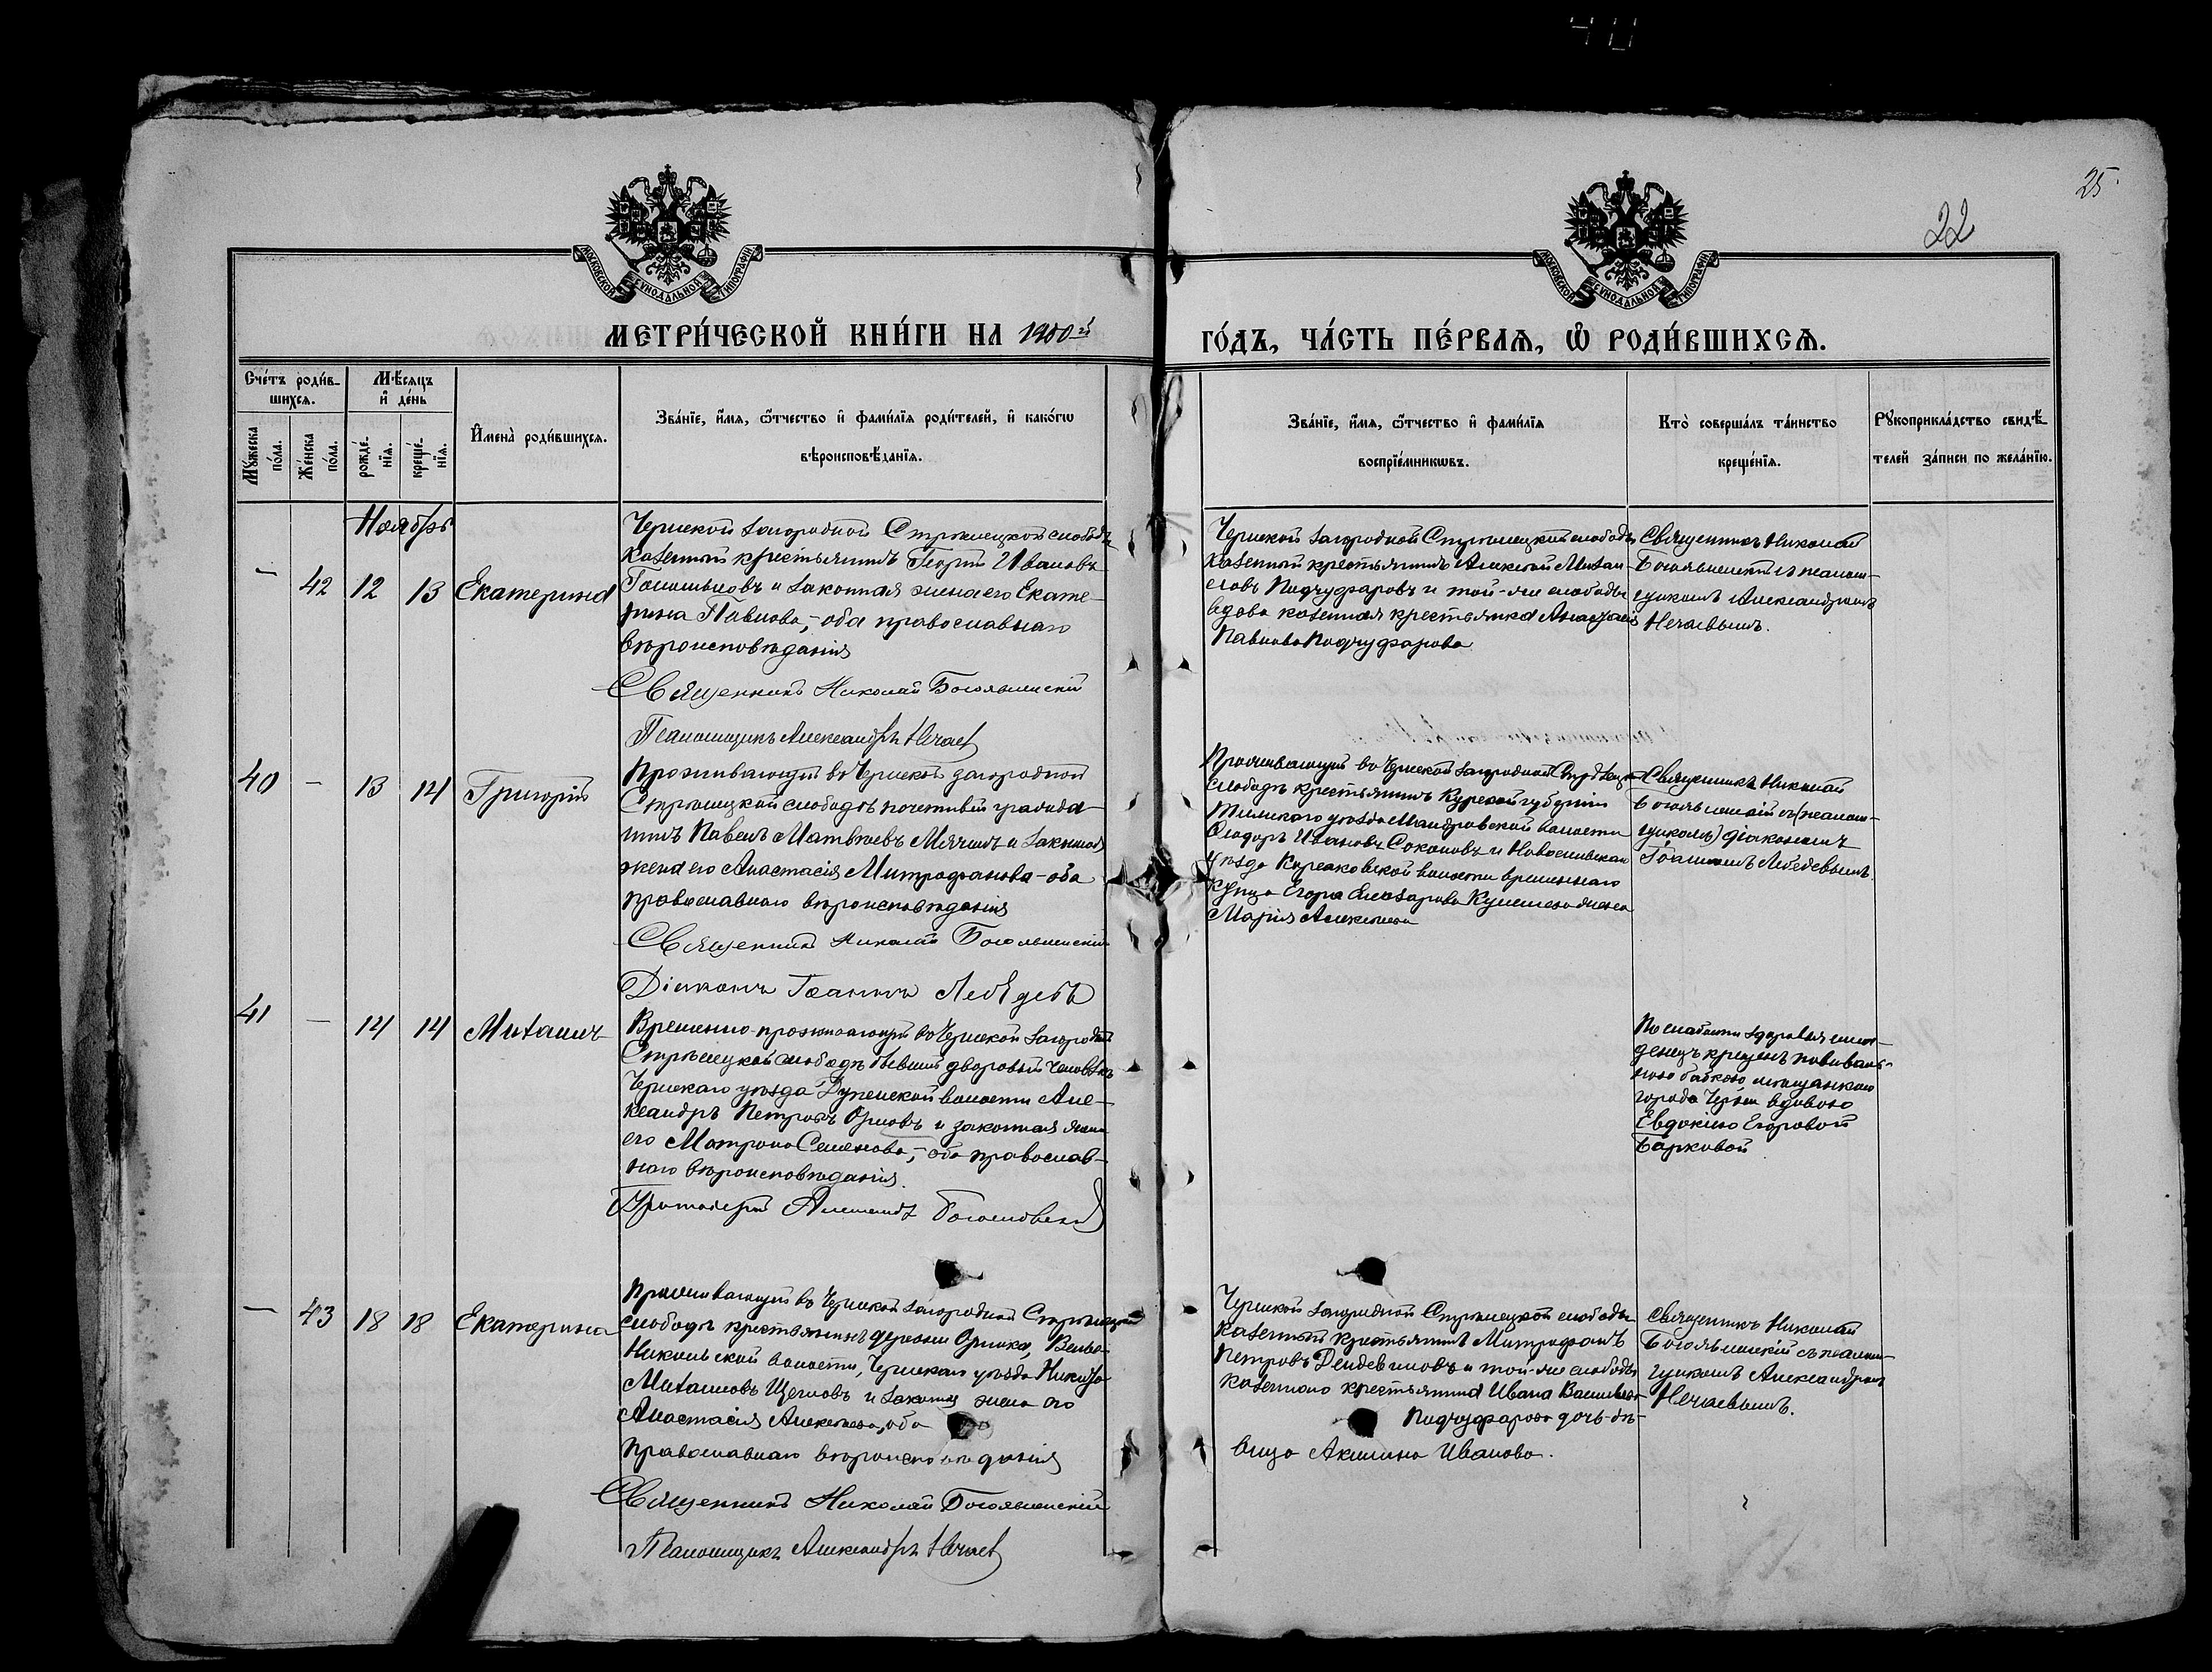 25
22
МОСКОВСКОЙ СѴНОДАЛЬНОЙ ТИПОГРАФІИ
МОСКОВСКОЙ СѴНОДАЛЬНОЙ ТИПОГРАФІИ
МЕТРИ́ЧЕСКОЙ КНИ́ГИ НА 1900й
ГО́ДЪ, ЧА́СТЬ ПЕ́РВАѦ, Ѡ҆ РОДИ́ВШИХСѦ.
Сче́тъ роди́в-
шихсѧ.
Мѣ́сѧцъ
и҆ де́нь
Мꙋ́жеска
по́ла.
Же́нска
по́ла.
рожде́-
нїѧ.
креще́-
нїѧ.
И҆мена̀ роди́вшихсѧ.
Зва́нїе, и҆́мѧ, ѻ҆́тчество и҆ фами́лїѧ роди́телей, и҆ како́гѡ
вѣроисповѣ́данїѧ.
Зва́нїе, и҆́мѧ, ѻ҆́тчество и҆ фами́лїѧ
воспрїе́мникѡвъ.
Кто̀ соверша́лъ та́инство
креще́нїѧ.
Рꙋкоприкла́дство свидѣ́-
телей за́писи по жела́нїю.
Ноябрь
— 42 12 13 Екатерина
Чернской загородной Стрѣлецкой слободы
казенный крестьянинъ Георгій Ивановъ
и законная жена его Екате-
рина Павлова,- оба православнаго
вѣроисповѣданія
Священникъ Николай Богоявленскій
Псаломщикъ Александръ Нечаев
Чернской загородной Стрѣлецкой слободы
казенный крестьянинъ Алексѣй Михаи-
ловъ Подчуфаровъ и той-же слободы
вдова казенная крестьянка Анастасія
Павлова Подчуфарова
Священникъ Николай
Богоявленскій съ псалом-
щикомъ Александромъ
Нечаевымъ.
40 — 13 14 Григорій
Проживающій въ Чернской загородной
Стрѣлецкой слободѣ почетный гражда-
нинъ Павелъ Матвѣевъ Мячинъ и законная
жена его Анастасія Митрофанова-оба
православнаго вѣроисповѣданія
Священникъ Николай Богоявленскій
Діаконъ Іоаннъ Лебѣдевъ
Проживающій въ Чернской загородной Стрѣлецкой
слободѣ крестьянинъ Курской губерніи
Тимскаго уѣзда волости
Ѳеодоръ Ивановъ Соколовъ и Новосильскаго
уѣзда волости временнаго
купца Егора Елеазарова жена
Марія Алексѣева
Священникъ Николай
Богоявленскій съ (псалом-
щикомъ) діакономъ
Іоанномъ Лебедевымъ.
41 — 14 14 Михаилъ
Временно-проживающій въ Чернской загородной
Стрѣлецкой слободѣ бывшій дворовый человѣкъ
Чернскаго уѣзда Дупенской волости Але-
ксандръ Петровъ Орловъ и законная жена
его Матрона Семенова,- оба православ-
наго вѣроисповѣданія.
Протоіерей Богословскій
По слабости здоровья мла-
денецъ крещенъ повиваль-
ною бабкою мѣщанкою
города Черни вдовою
Евдокіею Егоровой
Барковой
— 43 18 18 Екатерина
Проживающій въ Чернской загородной Стрѣлецкой
слободѣ крестьянинъ деревни Орлика, Велье-
Никольской волости, Чернскаго уѣзда Никита
Михаиловъ Щегловъ и законная жена его
Анастасія Алексѣева, оба
православнаго вѣроисповѣданія
Священникъ Николай Богоявленскій
Псаломщикъ Александръ Нечаев
Чернской загородной Стрѣлецкой слободы
казенный крестьянинъ Митрофанъ
Петровъ и той-же слободы
казеннаго крестьянина Ивана Васильева
Подчуфарова дочь-дѣ-
вица Акилина Иванова.
Священникъ Николай
Богоявленскій съ псалом-
щикомъ Александромъ
Нечаевымъ.